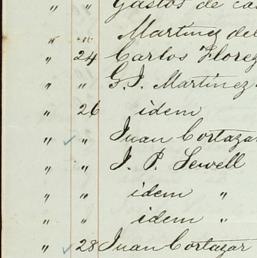 " " Gastos de
" " Martinez del
" 24 Carlos Flores
" " G. I. Martinez
" 26 idem
" " Juan Cortazar
" " J. P. Sewell
" " idem "
" " idem "
" 28 Juan Cortazar